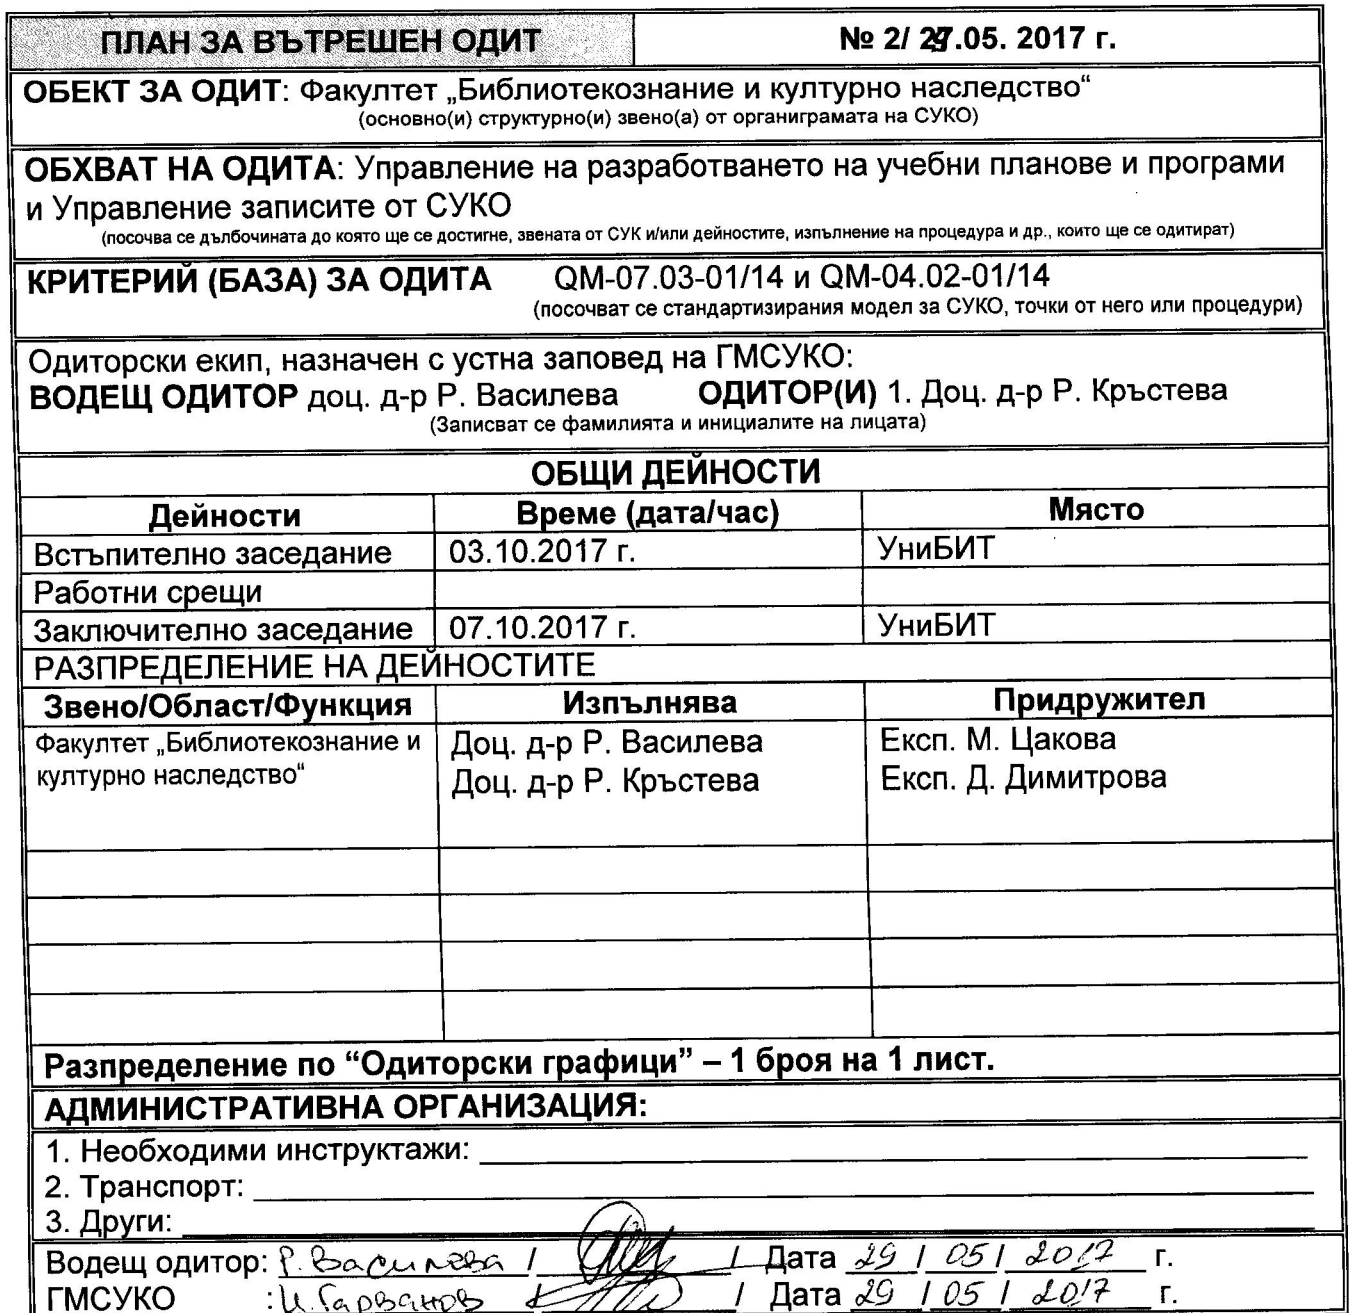 ПЛАН ЗА ВЪТРЕШЕН ОДИТ № 2/ 29.05. 2017 г.
ОБЕКТ ЗА ОДИТ: Факултет „Библиотекознание и културно наследство“
(основно(и) структурно(и) звено(а) от органиграмата на СУКО)
ОБХВАТ НА ОДИТА: Управление на разработването на учебни планове и програми
и Управление записите от СУКО
(посочва се дълбочината до която ще се достигне, звената от СУК и/или дейностите, изпълнение на процедура и др., които ще се одитират)
КРИТЕРИЙ (БАЗА) ЗА ОДИТА QM-07.03-01/14 и QM-04.02-01/14
(посочват се стандартизирания модел за СУКО, точки от него или процедури)
Одиторски екип, назначен с устна заповед на ГМСУКО:
ВОДЕЩ ОДИТОР доц. д-р Р. Василева ОДИТОР(И) 1. Доц. д-р Р. Кръстева
(Записват се фамилията и инициалите на лицата)
ОБЩИ ДЕЙНОСТИ
Дейности Време (дата/час) Място
Встъпително заседание 03.10.2017 г. УниБИТ
Работни срещи
Заключително заседание 07.10.2017 г. УниБИТ
РАЗПРЕДЕЛЕНИЕ НА ДЕЙНОСТИТЕ
Звено/Област/Функция Изпълнява Придружител
Факултет „Библиотекознание и Доц. д-р Р. Василева Експ. М. Цакова
културно наследство“ Доц. д-р Р. Кръстева Експ. Д. Димитрова
Разпределение по “Одиторски графици” – 1 броя на 1 лист.
АДМИНИСТРАТИВНА ОРГАНИЗАЦИЯ:
1. Необходими инструктажи:
2. Транспорт:
3. Други:
Водещ одитор: Р. Василева / / Дата 29 / 05 / 2017 г.
ГМСУКО : И. Гарванов / / Дата 29 / 05 / 2017 г.